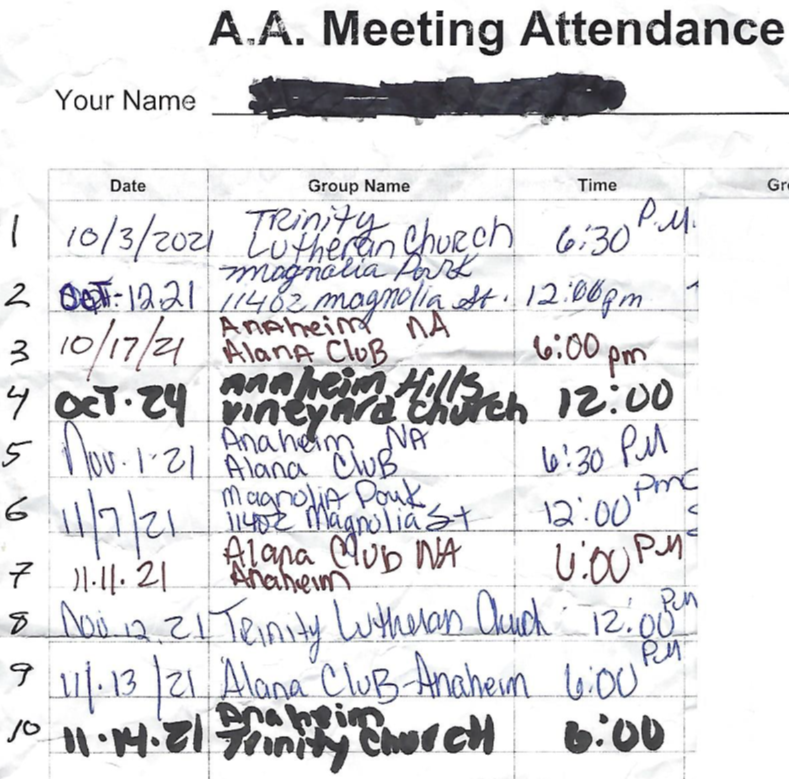 A.A. Meeting Attendance
Your Name
Date Group Name Time Gr
1 10/3/2021 Trinity Lutheran Church 6:30 P.M.
2 Oct-12.21 Magnolia Park 11402 magnolia St. 12:00pm
3 10/17/21 Anaheim NA Alana Club 6:00 pm
4 Oct. 24 Annheim Hills Vineyard Church 12:00
5 Nov. 1-21 Anaheim NA Alana Club 6:30 PM
6 11/7/21 Magnolia Park 11402 Magnolia St 12:00 Pm
7 11.11.21 Alana Club NA Anaheim 6:00 PM
8 Nov. 12, 21 Trinity Lutheran Church 12:00 Pm
9 11/.13/21 Alana Club-Anaheim 6:00 PM
10 11.14.21 Anaheim Trinity Church 6:00